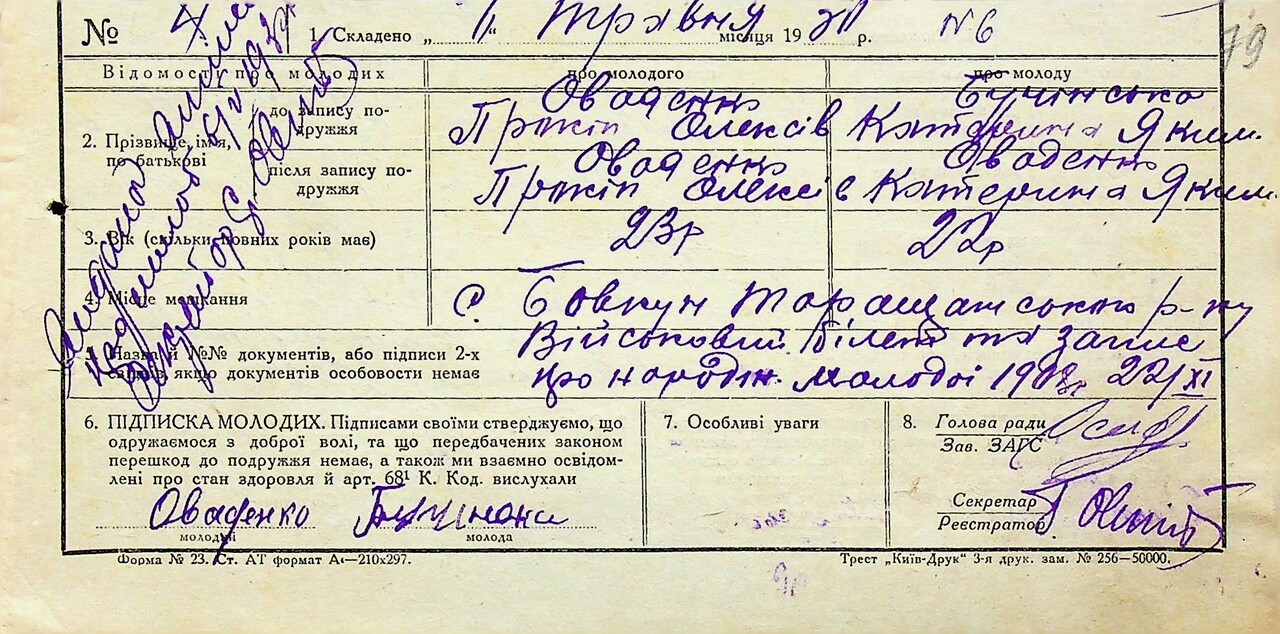 № 4 1. Складено „11“ Травня місяця 1931 р. N6
79
Відомості про молодих про молодого про молоду
2. Прізвище, ім'я, по батькові
до запису подружжя
Оваденко Прокіп Олексів
Бучінська Катерина Яким.
після запису подружжя
Оваденко Прокіп Олексів
Оваденко Катерина Яким.
3. Вік (скільки повних років має) 23р 22р
4. Місце мешкання с. Бовкун Таращанського р-ну
5. Назва й №№ документів, або підписи 2-х
свідків, якщо документів особовости немає
Військовий білет та запис
про народж. молодої 1908р 22/XI
6. ПІДПИСКА МОЛОДИХ. Підписами своїми стверджуємо, що
одружаємося з доброї волі, та що передбачених законом
перешкод до подружжя немає, а також ми взаємно освідом-
лені про стан здоровля й арт. 68¹ К. Код. вислухали
Оваденко
молодий молода
7. Особливі уваги
8. Голова ради
Зав. ЗАГС
Секретар
Реєстратор
Форма № 23. Ст. АТ формат А4—210х297.
Трест „Київ-Друк“ 3-я друк. зам. № 256—50000.